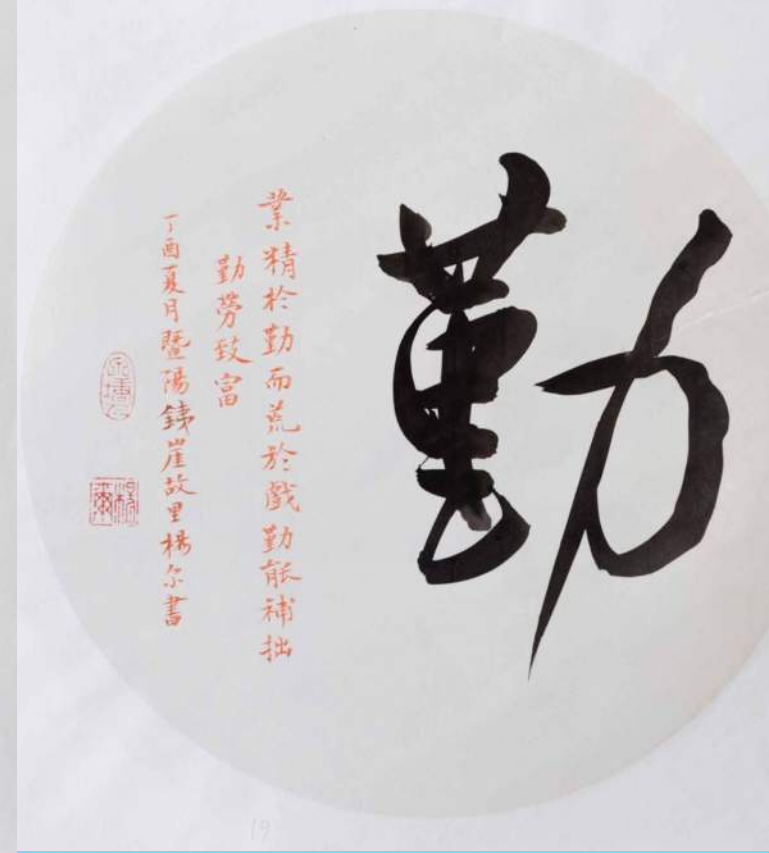 勤
業精於勤而荒於戲勤能補拙
勤勞致富
丁酉夏月暨陽鐵崖故里楊尔書
19